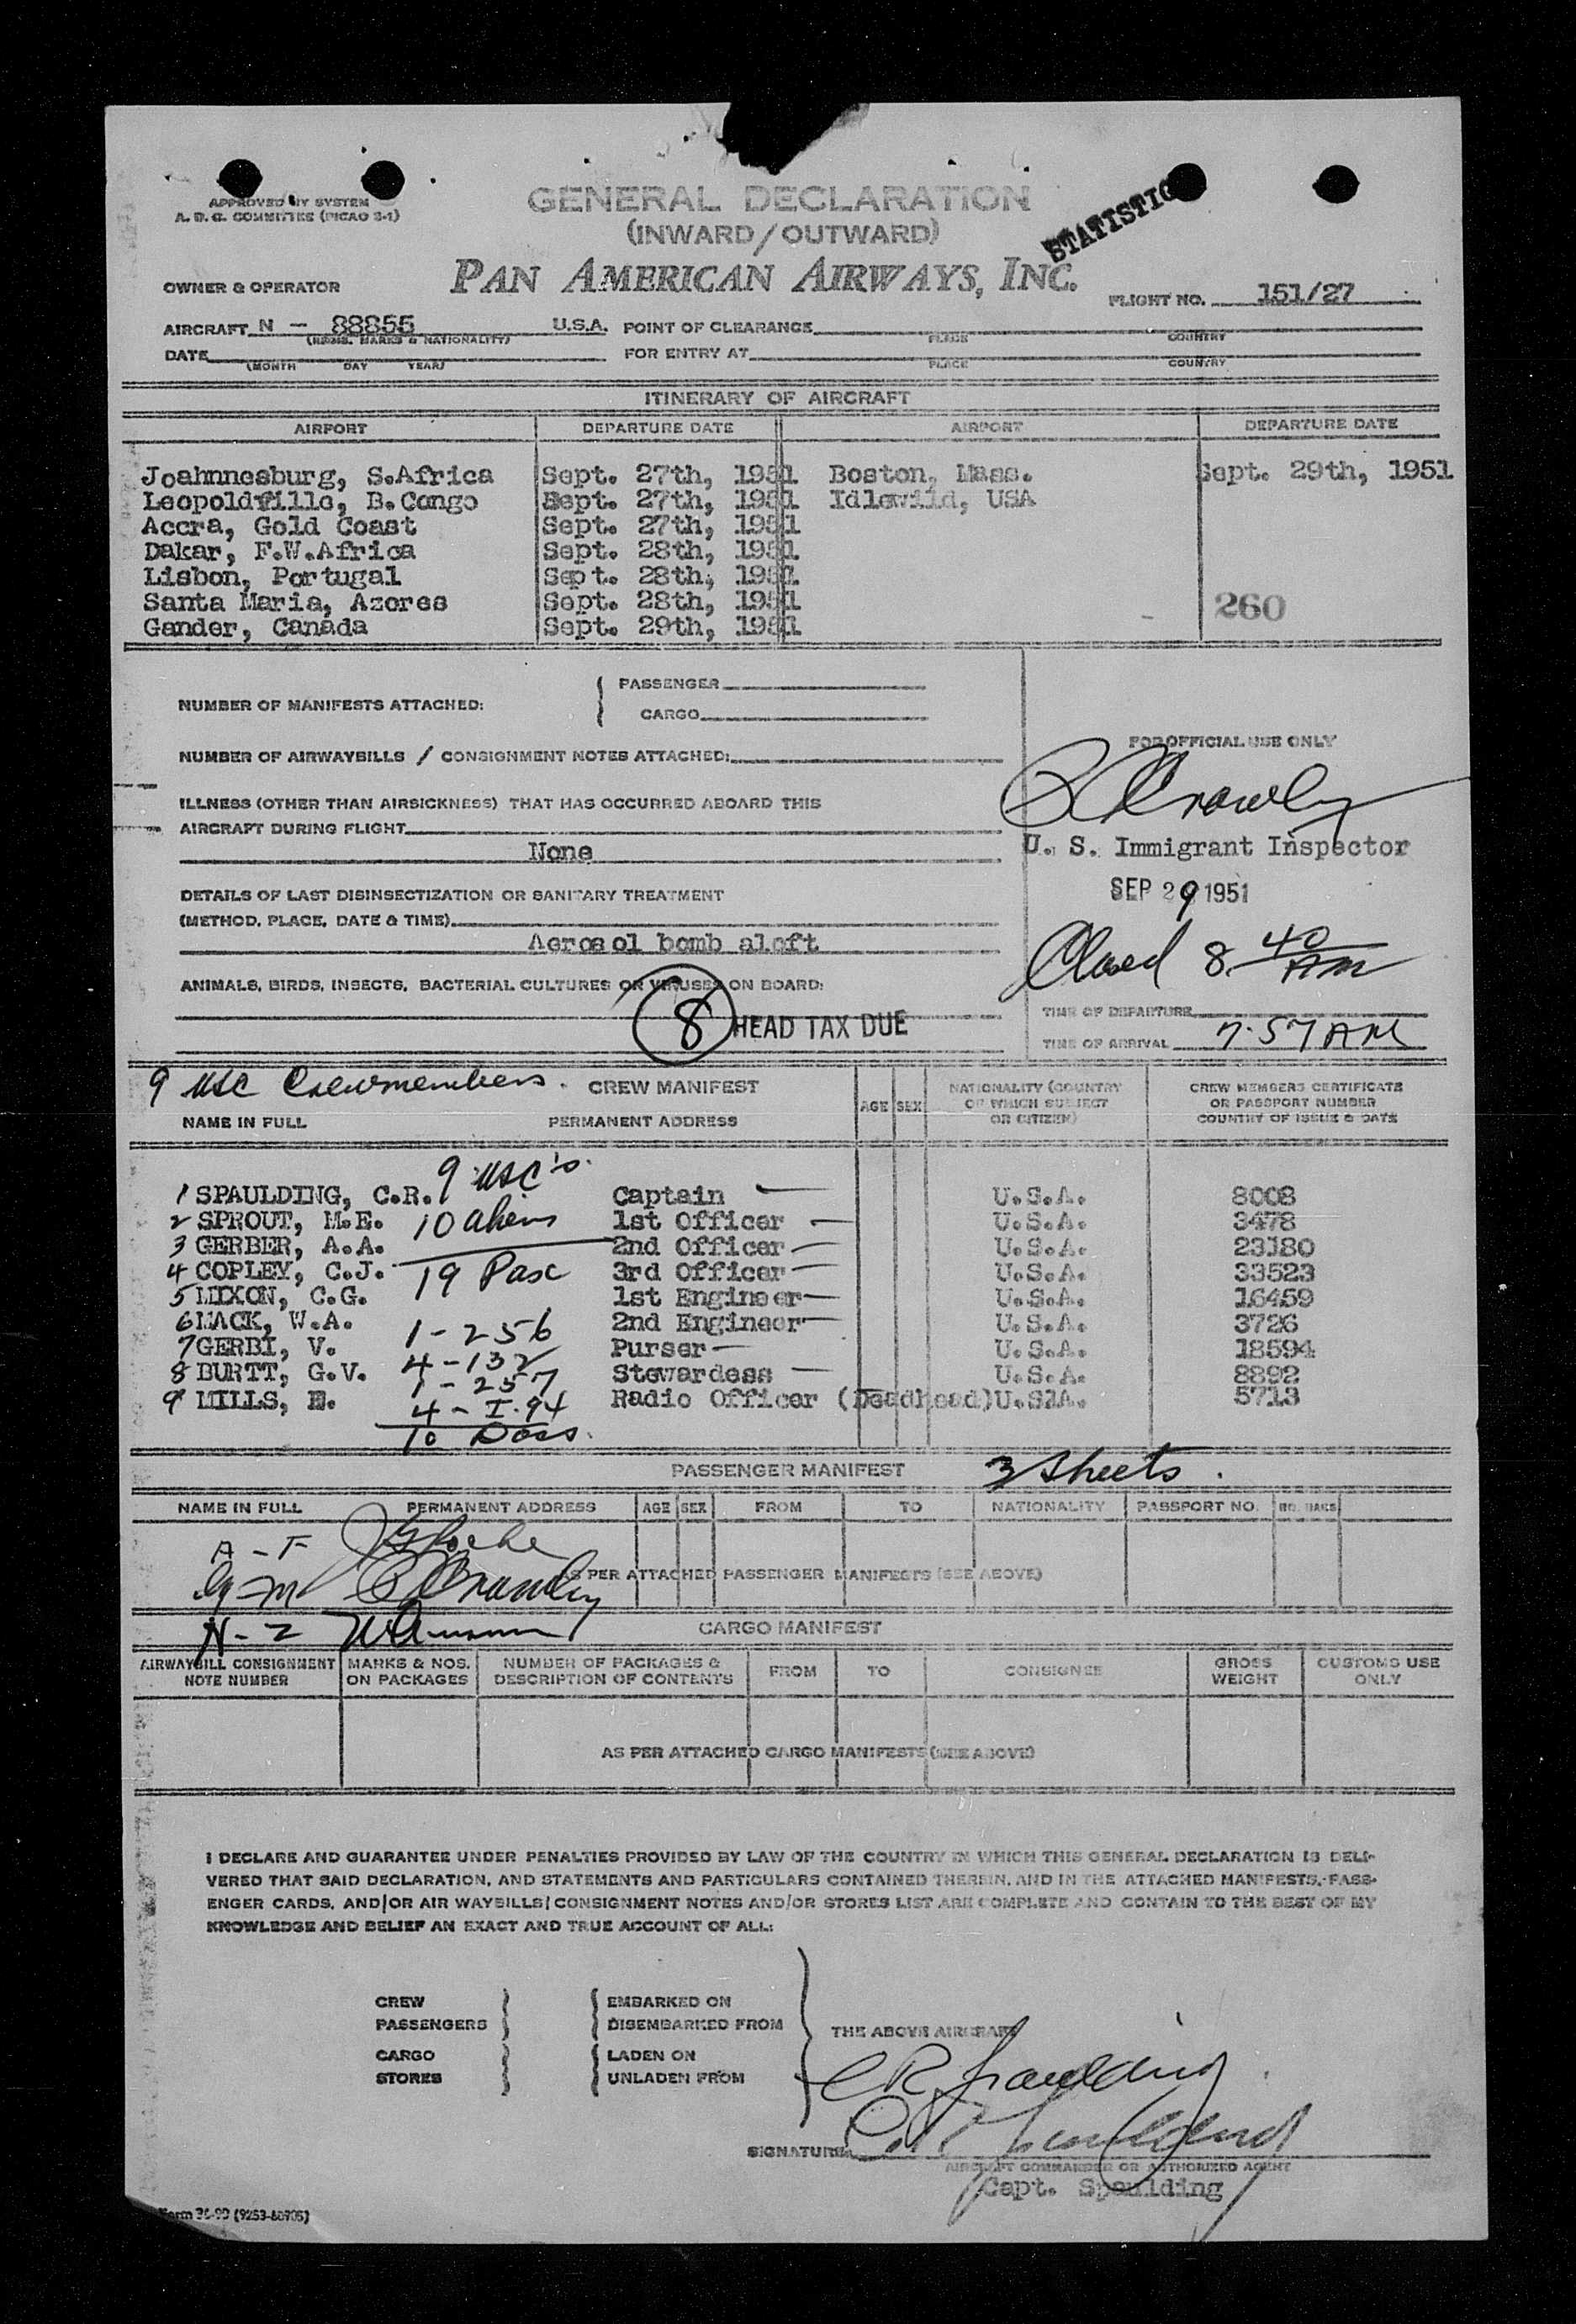 APPROVED BY SYSTEM
A. D. C. COMMITTEE (PICAO 2-1)
GENERAL DECLARATION
(INWARD/OUTWARD)
STATISTIC
OWNER & OPERATOR PAN AMERICAN AIRWAYS, INC.
FLIGHT NO. 151/27
AIRCRAFT N - 88855 U.S.A. POINT OF CLEARANCE
(REGIS. MARKS & NATIONALITY) PLACE COUNTRY
DATE FOR ENTRY AT
(MONTH DAY YEAR) PLACE COUNTRY
ITINERARY OF AIRCRAFT
AIRPORT DEPARTURE DATE AIRPORT DEPARTURE DATE
Joahnnesburg, S.Africa Sept. 27th, 1951 Boston, Mass. Sept. 29th, 1951
Leopoldville, B.Congo Sept. 27th, 1951 Idlewild, USA
Accra, Gold Coast Sept. 27th, 1951
Dakar, F.W.Africa Sept. 28th, 1951
Lisbon, Portugal Sept. 28th, 1951
Santa Maria, Azores Sept. 28th, 1951 260
Gander, Canada Sept. 29th, 1951
NUMBER OF MANIFESTS ATTACHED: PASSENGER
CARGO
NUMBER OF AIRWAYBILLS / CONSIGNMENT NOTES ATTACHED:
FOR OFFICIAL USE ONLY
ILLNESS (OTHER THAN AIRSICKNESS) THAT HAS OCCURRED ABOARD THIS
AIRCRAFT DURING FLIGHT
None
U. S. Immigrant Inspector
SEP 29 1951
DETAILS OF LAST DISINSECTIZATION OR SANITARY TREATMENT
(METHOD, PLACE, DATE & TIME)
Aerosol bomb aloft
Closed 8 40 AM
ANIMALS, BIRDS, INSECTS, BACTERIAL CULTURES OR VIRUSES ON BOARD:
8 HEAD TAX DUE
TIME OF DEPARTURE
TIME OF ARRIVAL 7:57 AM
9 USC Crewmembers. CREW MANIFEST
NAME IN FULL PERMANENT ADDRESS AGE SEX NATIONALITY (COUNTRY OF WHICH SUBJECT OR CITIZEN) CREW MEMBERS CERTIFICATE OR PASSPORT NUMBER COUNTRY OF ISSUE & DATE
9 USC's.
1 SPAULDING, C.R. Captain U.S.A. 8008
2 SPROUT, M.E. 10 aliens 1st Officer U.S.A. 3478
3 GERBER, A.A. 2nd Officer U.S.A. 23180
4 COPLEY, C.J. 19 Pass 3rd Officer U.S.A. 33523
5 MIXON, C.G. 1st Engineer U.S.A. 16459
6 MACK, W.A. 1-256 2nd Engineer U.S.A. 3726
7 GERBI, V. 4-132 Purser U.S.A. 18594
8 BURTT, G.V. 1-257 Stewardess U.S.A. 8892
9 MILLS, E. 4-I-94 Radio Officer (Deadhead) U.S.A. 5713
10 Docs.
PASSENGER MANIFEST 3 Sheets.
NAME IN FULL PERMANENT ADDRESS AGE SEX FROM TO NATIONALITY PASSPORT NO. NO. BAGS
A - F
AS PER ATTACHED PASSENGER MANIFESTS (SEE ABOVE)
N - Z
CARGO MANIFEST
AIRWAYBILL CONSIGNMENT NOTE NUMBER MARKS & NOS. ON PACKAGES NUMBER OF PACKAGES & DESCRIPTION OF CONTENTS FROM TO CONSIGNEE GROSS WEIGHT CUSTOMS USE ONLY
AS PER ATTACHED CARGO MANIFESTS (SEE ABOVE)
I DECLARE AND GUARANTEE UNDER PENALTIES PROVIDED BY LAW OF THE COUNTRY IN WHICH THIS GENERAL DECLARATION IS DELI-
VERED THAT SAID DECLARATION, AND STATEMENTS AND PARTICULARS CONTAINED THEREIN, AND IN THE ATTACHED MANIFESTS, PASS-
ENGER CARDS, AND/OR AIR WAYBILLS/CONSIGNMENT NOTES AND/OR STORES LIST ARE COMPLETE AND CONTAIN TO THE BEST OF MY
KNOWLEDGE AND BELIEF AN EXACT AND TRUE ACCOUNT OF ALL:
CREW EMBARKED ON
PASSENGERS DISEMBARKED FROM
THE ABOVE AIRCRAFT
CARGO LADEN ON
STORES UNLADEN FROM
CR Spaulding
SIGNATURE
AIRCRAFT COMMANDER OR AUTHORIZED AGENT
Capt. Spaulding